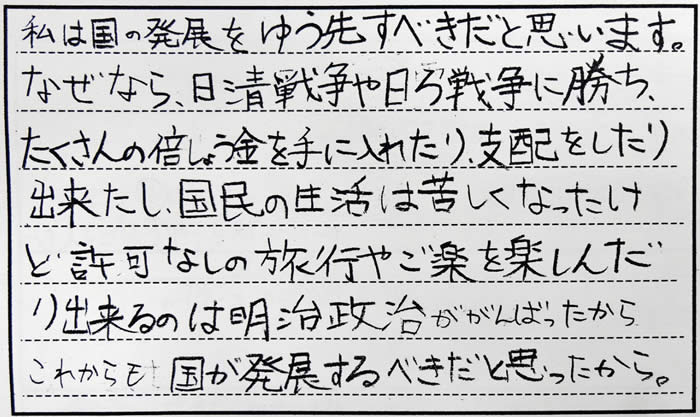 私は国の発展をゆう先すべきだと思います。
なぜなら、日清戦争や日ろ戦争に勝ち、
たくさんの倍しょう金を手に入れたり、支配をしたり
出来たし、国民の生活は苦しくなったけ
ど許可なしの旅行やご楽を楽しんだ
り出来るのは明治政治ががんばったから
これからも国が発展するべきだと思ったから。